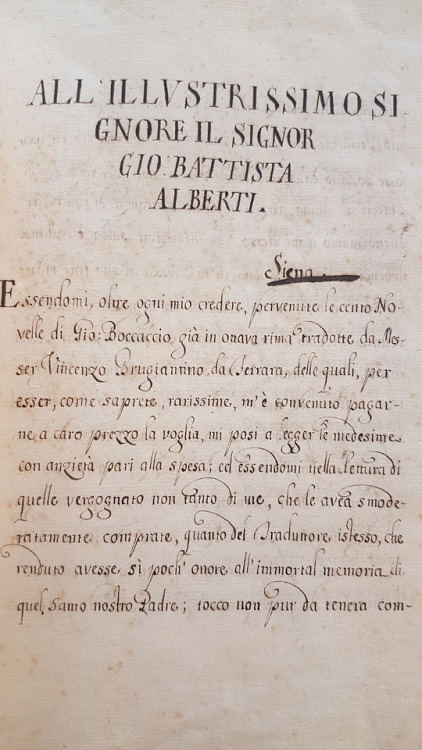 ALL'ILLVSTRISSIMO SI.
GNORE IL SIGNOR
GIO: BATTISTA
ALBERTI.
Siena
Essendomi, oltre ogni mio credere, pervenute le cento No-
velle di Gio: Boccaccio, già in ottava rima tradotte da Mes-
ser Vincenzo Brugiantino da Ferrara, delle quali, per
esser, come saprete, rarissime, m'è convenuto pagar-
ne a caro prezzo la voglia, mi posi a legger le medesime
con anzietà pari alla spesa; ed essendomi nella lettura di
quelle vergognato non tanto di me, che le avea smode-
ratamente comprate, quanto del Traduttore istesso, che
renduto avesse sì poch' onore all'immortal memoria di
quel Santo nostro Padre; tocco non pur da tenera com-